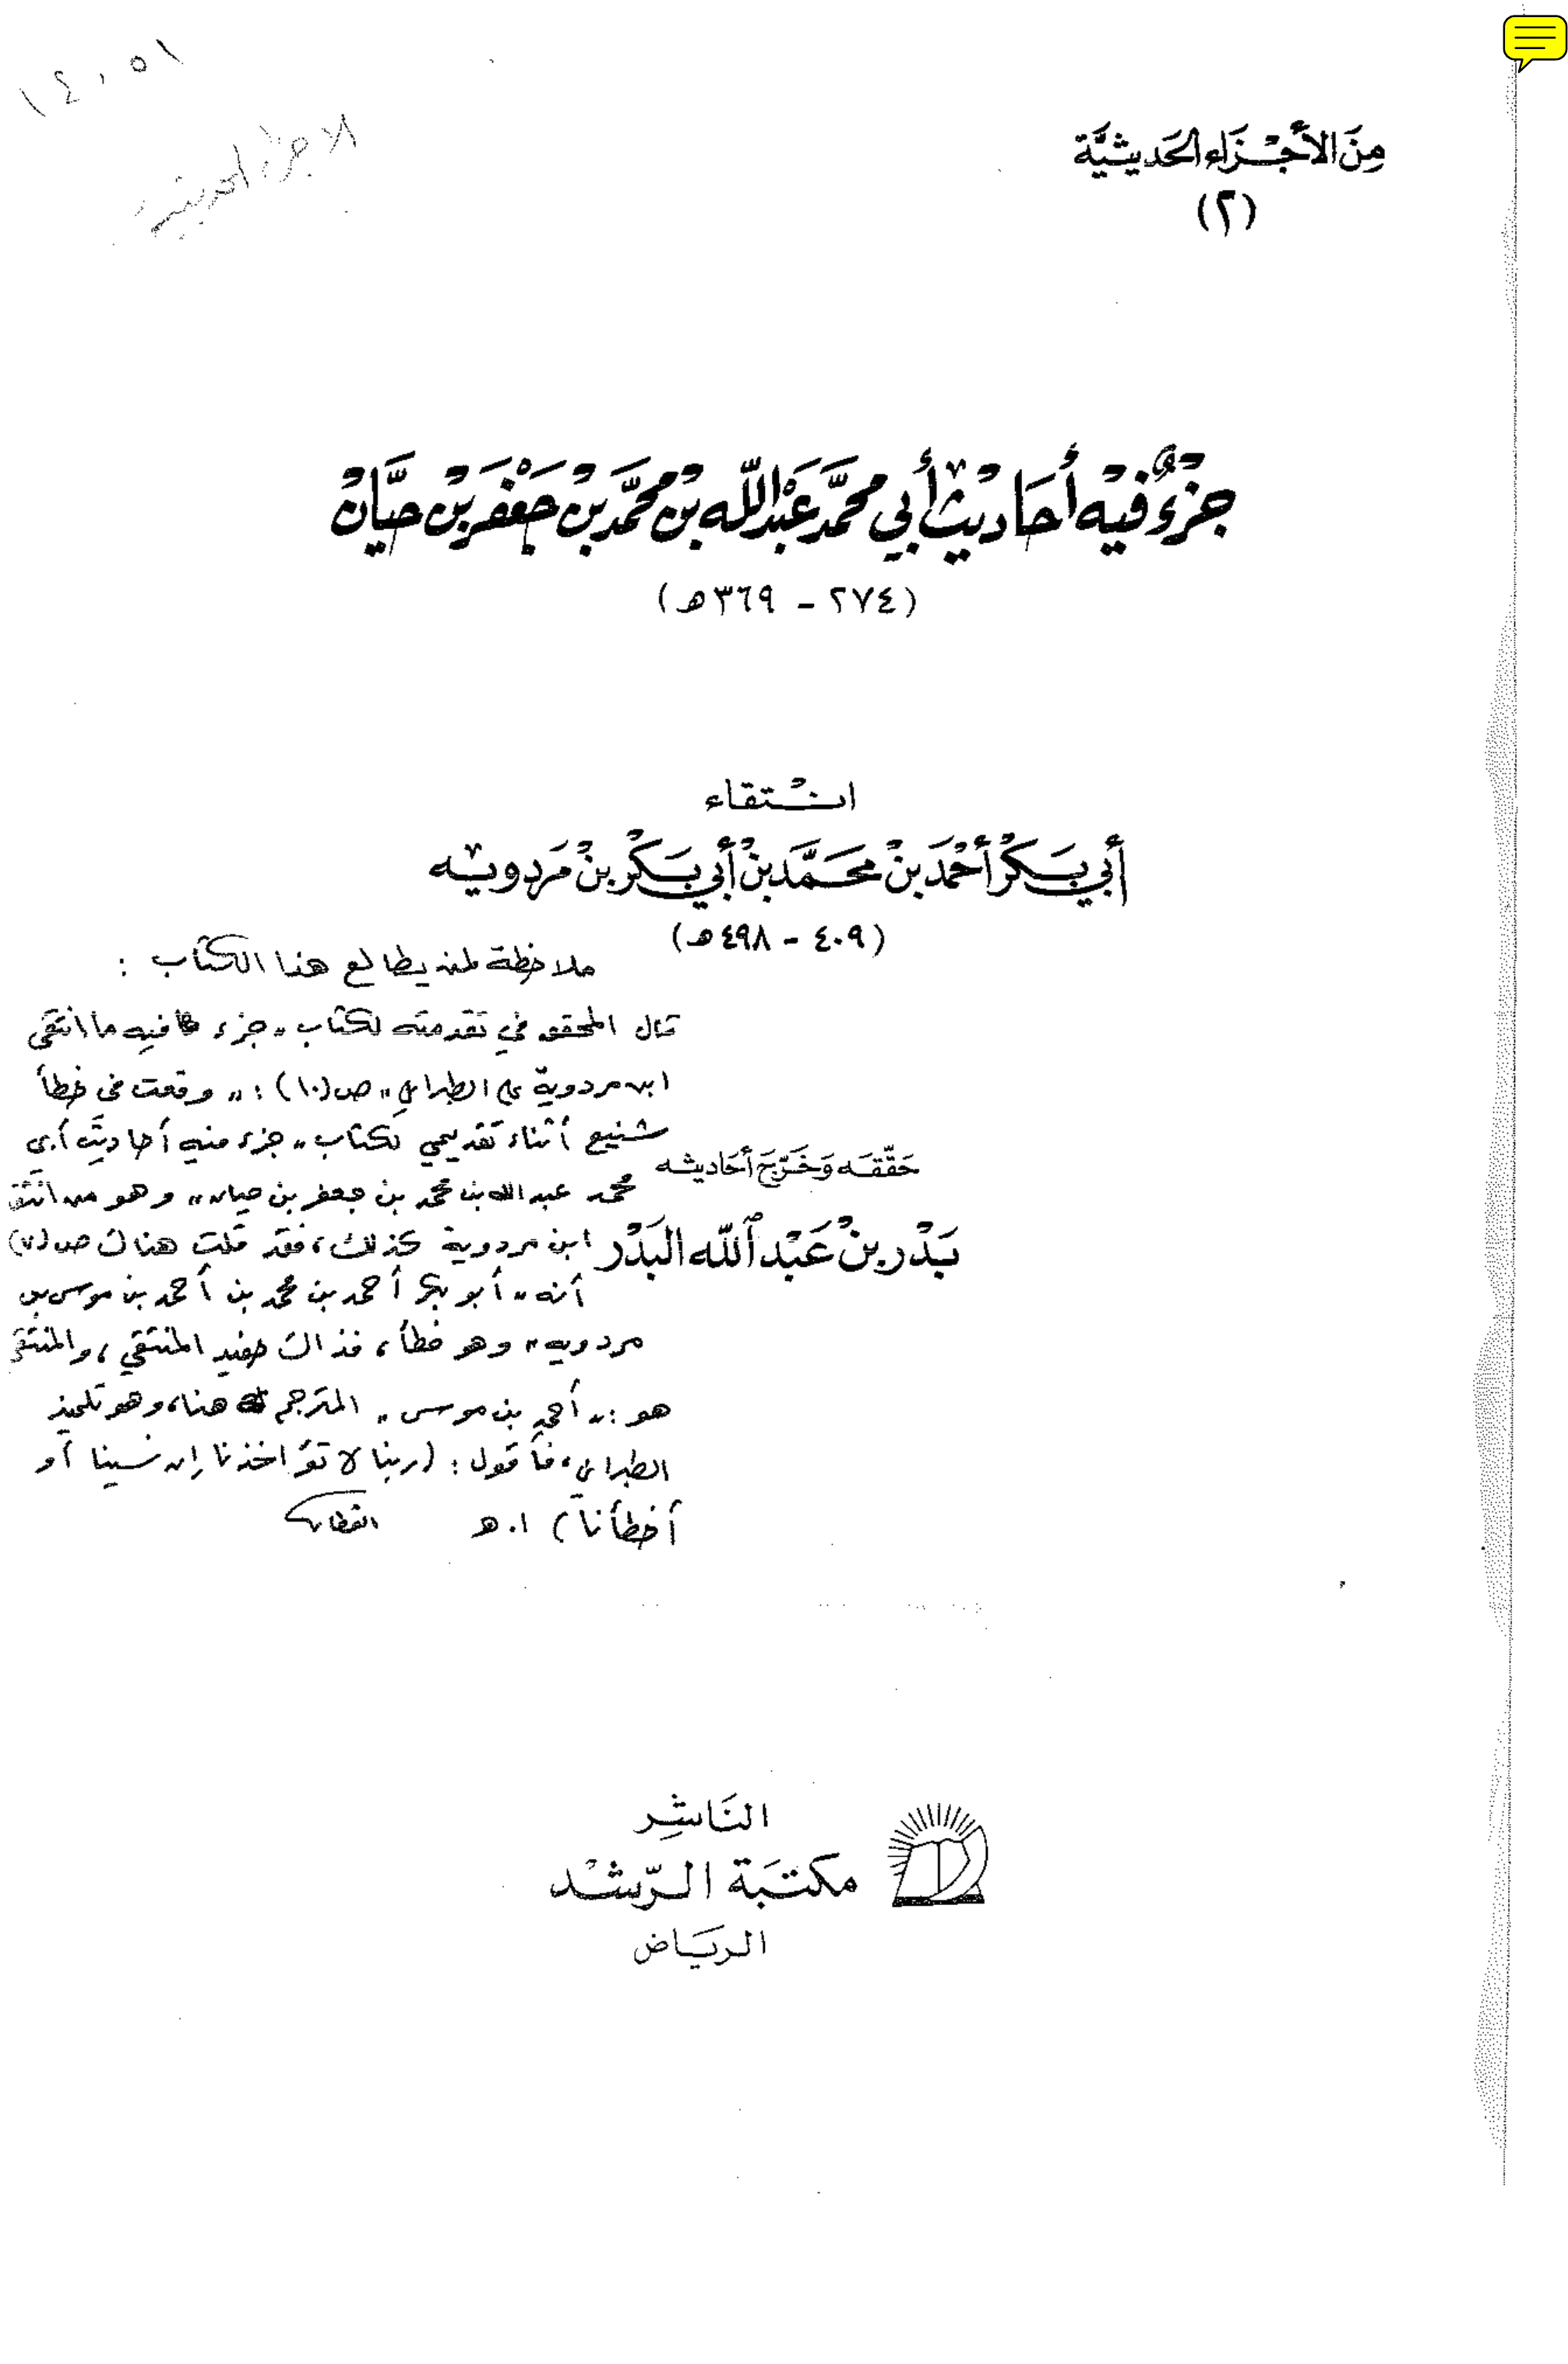 ١٤٠٥١
الأجزاء الحديثية
مِنَ الأَجْزَاءِ الحَدِيثِيَّة
(٢)
جُزْءٌ فِيْهِ أَحَادِيْثِ أَبِي مُحَمَّد عَبْدِ اللّه بْن مُحَمَّد بْن جَعْفَر بْن حَيَّانْ
(٢٧٤ - ٣٦٩هـ)
انْتقاء
أَبِي بَكْر أَحْمَد بنْ مُحَمَّد بنْ أَبِي بَكْر بنْ مَردويْه
(٤٠٩ - ٤٩٨هـ)
ملاحظة لمن يطالع هذا الكتاب :
قال المحقق في تقدمته لكتاب «جزء فيه ما انتقى
ابن مردوية على الطبراني» ص (١٠) : «وقعت في خطأ
شنيع أثناء تقديمي لكتاب «جزء فيه أحاديث أبي
محمد عبد الله بن محمد بن جعفر بن حيان» وهو من انتقاء
ابن مردوية كذلك، فقد قلت هناك ص (٧)
أنه «أبو بكر أحمد بن محمد بن أحمد بن موسى بن
مردويه» وهو خطأ، فذاك حفيد المنتقي، والمنتقي
هو : «أحمد بن موسى» المترجم هنا، وهو تلميذ
الطبراني، فأقول : (ربنا لا تؤاخذنا إن نسينا أو
أخطأنا) ا.هـ القطان
حَقَّقَه وَخَرَّجَ أَحَاديثه
بَدْر بنْ عَبْد ٱللّه البَدْر
النَاشِر
مكتبَة الرّشْد
الريَاض